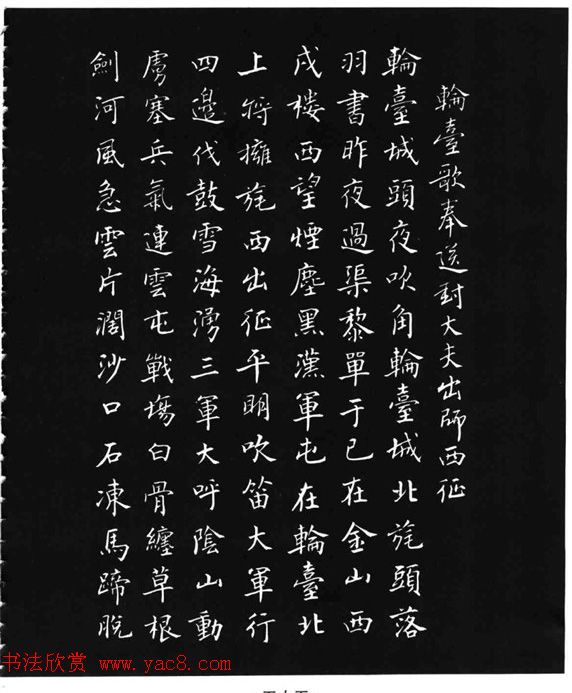 輪臺歌奉送封大夫出師西征
輪臺城頭夜吹角輪臺城北旄頭落
羽書昨夜過渠黎單于已在金山西
戍楼西望煙塵黑漢軍屯在輪臺北
上将擁旄西出征平明吹笛大軍行
四邊伐鼓雪海湧三軍大呼陰山動
虜塞兵氣連雲屯戰場白骨纏草根
劍河風急雲片濶沙口石凍馬蹄脫
书法欣赏 www.yac8.com